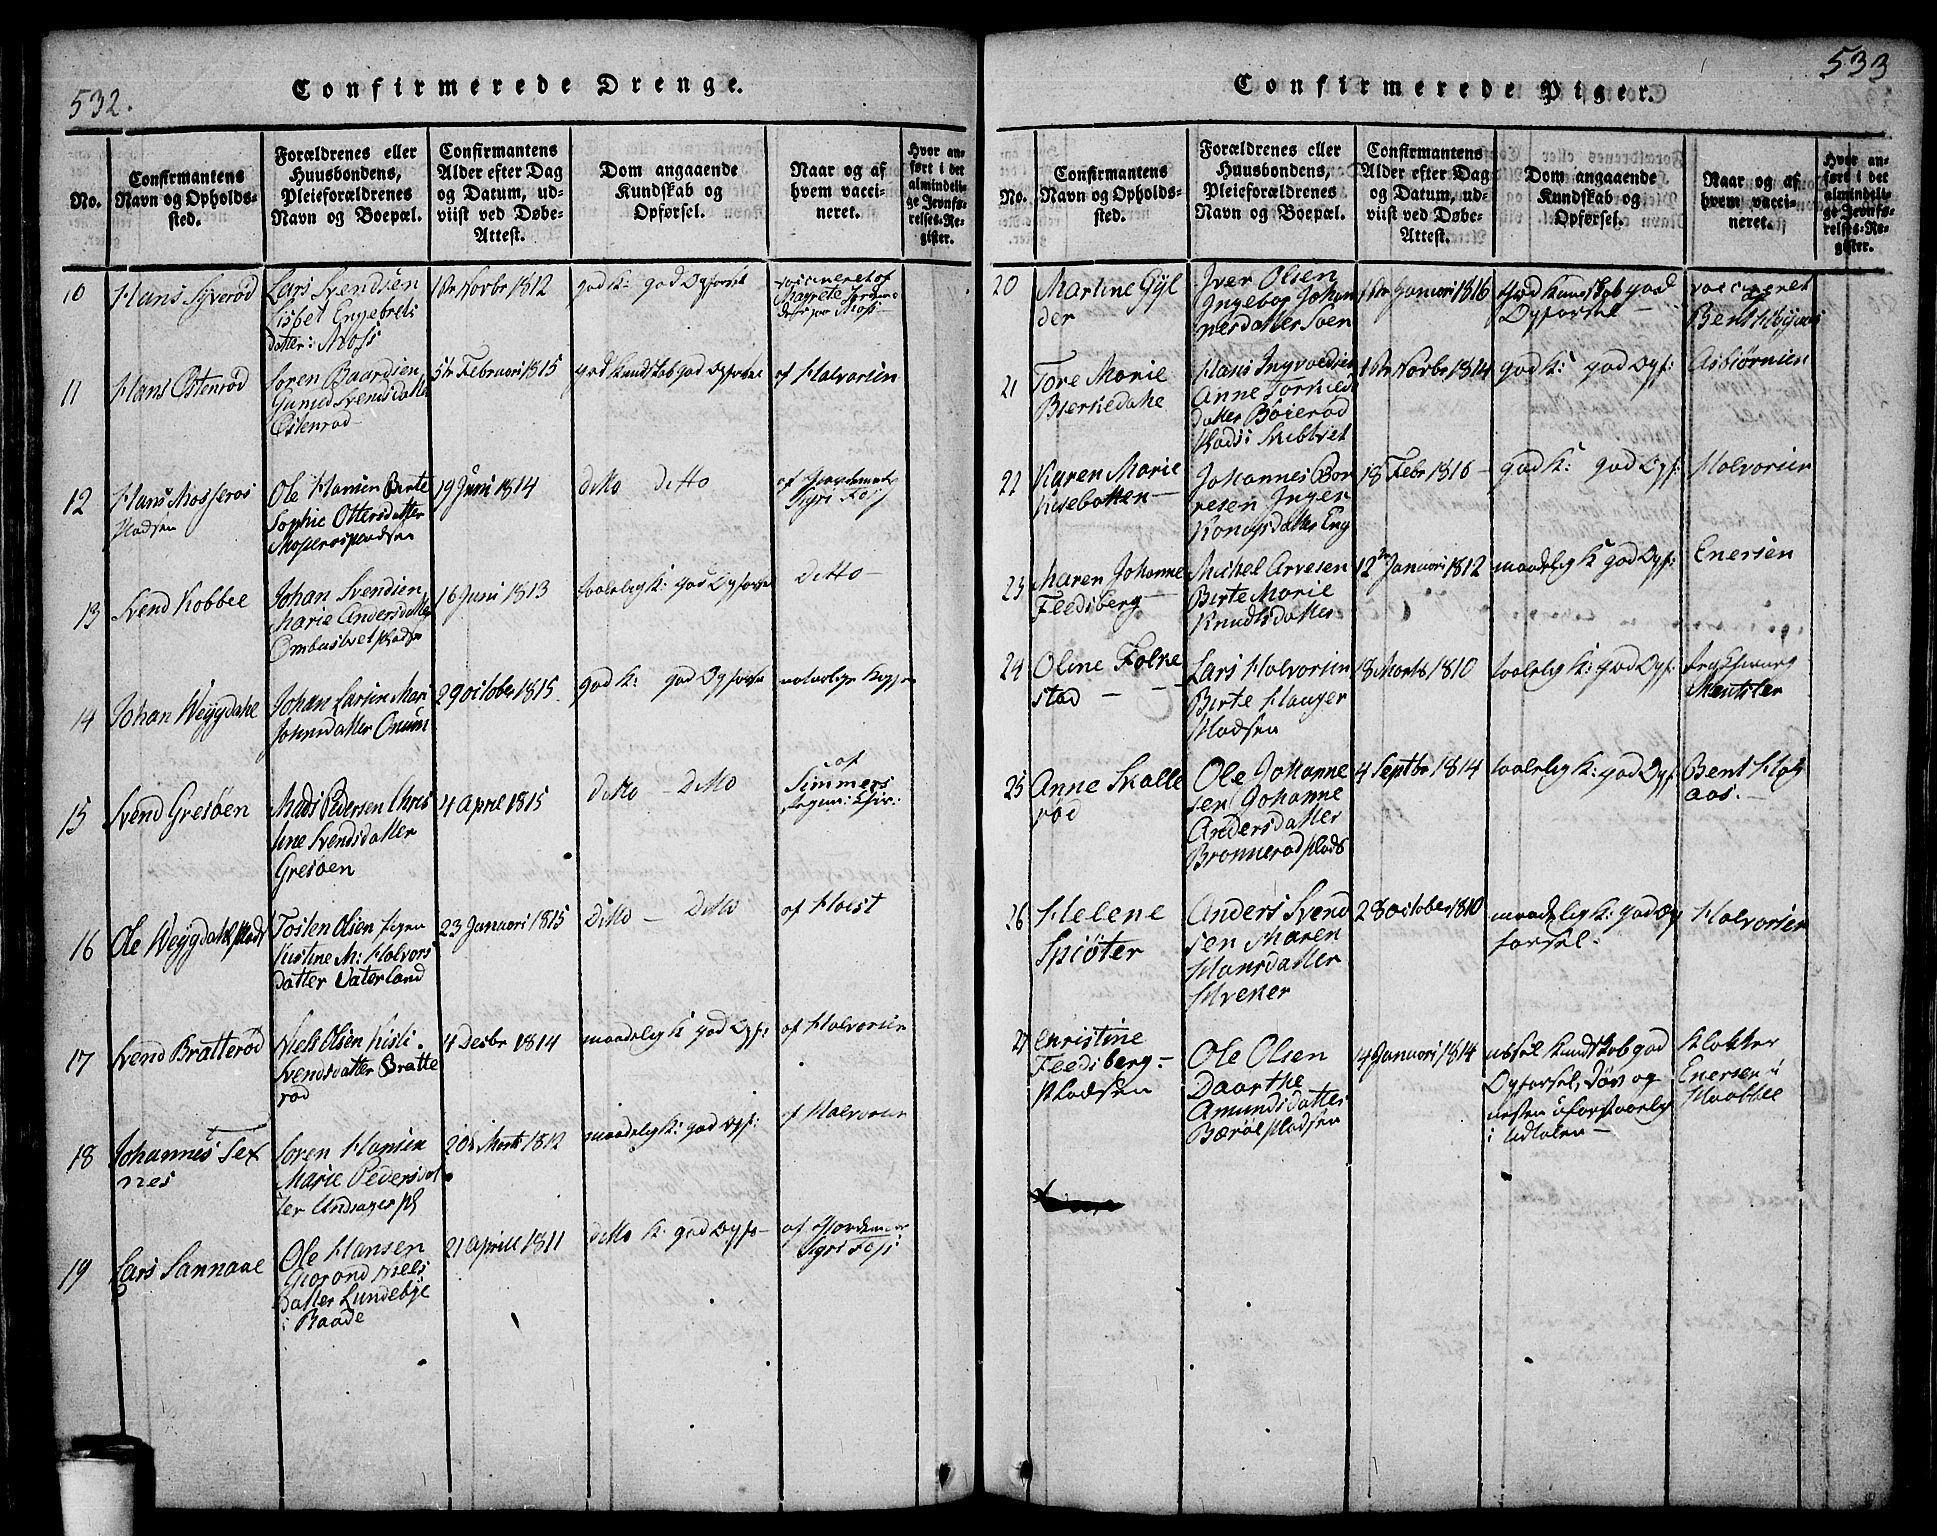 532.
Confirmerede Drenge.
No.
Confirmantens
Navn og Opholds-
sted.
Forældrenes eller
Huusbondens,
Pleieforældrenes
Navn og Boepæl.
Confirmantens
Alder efter Dag
og Datum, ud-
viist ved Døbe-
Attest.
Dom angaaende
Kundskab og
Opførsel.
Naar og af
hvem vacci-
neret.
Hvor an-
ført i det
almindeli-
ge Jevnfø-
relses-Re-
gister.
10
Hans Syverød
Lars Svendsen
Lisbet Engebrets
datter: Moss
1ste Novbr 1812
god K: god Opførsel
vaccineret af
11
Hans Østenrød
Soren Baardsen
Østenrød
5te Februari 1815
god Kundskab god Opførsel
af Halvorsen
12
Hans Mosseros
Pladsen
Ole Hansen Berte
Sophie Ottersdatter
19 Juni 1814
ditto ditto
Sigri Foss
13
Svend Kobbee
Johan Svendsen
Marie Andersdatter
16 Juni 1813
taalelig K: god Opførsel
Ditto
14
Johan Weygdahl
Johan Larsen Mari
29 October 1815
god K: god Opførsel
naturlige Kopper
15
Svend Gresøen
Mads Pedersen Chris
tine Svendsdatter
Gresøen
4 April 1815
ditto - Ditto
af
Simmers
16
Ole Weygdahl plads
Tosten Olsen
Kistine M: Halvors
datter Vaterland
23 Januari 1815
Ditto - Ditto
af Hoist
17
Svend Bratterød
Niels Olsen Kisti
Svendsdatter Bratte
rød
4 Desbr 1814
maadelig K god Opf:
af Halvorsen
18
Johannes Tex
nes
Soren Hansen
Marie Pedersdat
ter
20de Marts 1812
maadelig K: god Opf:
af Halvorsen
19
Lars Sannaae
Ole Hansen
Niels
datter Lundebye
i Raade
21 Aprill 1811
ditto K: god Opfø-
af Jordemor
Sigri Foss
533
Confirmerede Piger.
No.
Confirmantens
Navn og Opholds-
sted.
Forældrenes eller
Huusbondens,
Pleieforældrenes
Navn og Boepæl.
Confirmantens
Alder efter Dag
og Datum, ud-
viist ved Døbe-
Attest.
Dom angaaende
Kundskab og
Opførsel.
Naar og af
hvem vacci-
neret.
Hvor an-
ført i det
almindeli-
ge Jevnfø-
relses-Re-
gister.
20
Martine Gyl
der
Iver Olsen
Ingebor Johan
nesdatter Soen
1ste Januari 1816
God Kundskab god
Opførsel -
vaccineret
Bent Høyaas
21
Tore Marie
Bierkedahe
Hans Ingvoldsen
Anne Torkeds
datter Bøierød
Plads i Skibtvet
1ste Novbr 1814
god K: god Opf:
Asbiørnsen
22
Karen Marie
Kisebotten -
Johannes Bor
resen Inger
18 Febr 1816 -
god K: god Opf:
Halvorsen
23
Maren Johanne
Feedsberg -
Mikel Arvesen
Birte Marie
Knudtsdatter
12te Januari 1812
maadelig K god Opf:
Enersen
24
Oline Folke
stad - - -
Lars Halvorsen
Birte Hauger
Pladsen
18 Marts 1810
taalelig K: god Opf:
25
Anne Skalle
rød
Ole Johanne
sen Johanne
Andersdatter
Brønnerød Plads
4 Septbr 1814
taalelig K: god Opf
Bent Høy
aas. -
26
Helene
Spiøter
Anders Svend
sen Maren
Hansdatter
28 October 1810
maadelig K: god Op
førsel -
Halvorsen
27
Christine
Feedsberg -
Pladsen
Ole Olsen
Daarthe
Amundsdatter
Pladsen
4 Januari 1814
ussel Kundskab god
Opførsel, døv og
nesten uforstaaelig
i Udtalen -
Klokker
Enersen i
Haabbel